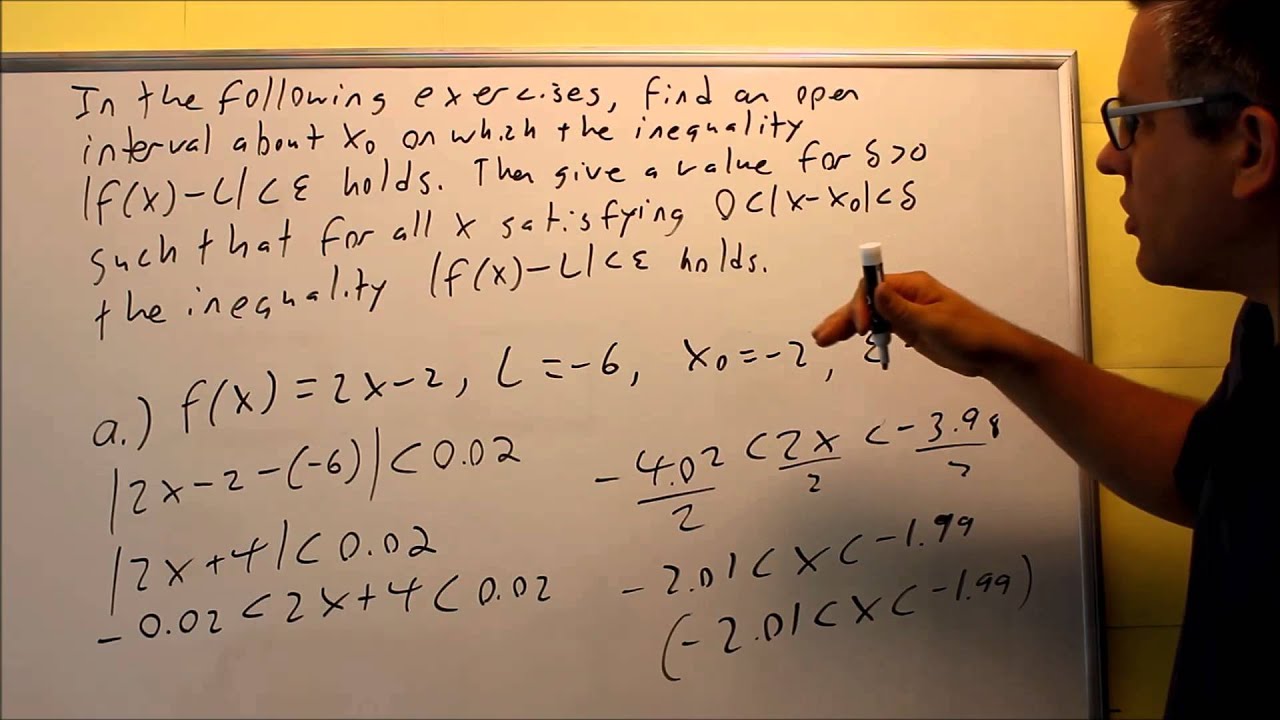 In the following exercises, find an open
interval about x₀ on which the inequality
|f(x)-L|<ε holds. Then give a value for δ>0
such that for all x satisfying 0<|x-x₀|<δ
the inequality |f(x)-L|<ε holds.
a.) f(x)=2x-2, L=-6, x₀=-2, ε
|2x-2-(-6)|<0.02
|2x+4|<0.02
-0.02<2x+4<0.02
-4.02/2 <2x/2 <-3.98/2
-2.01<x<-1.99
(-2.01<x<-1.99)